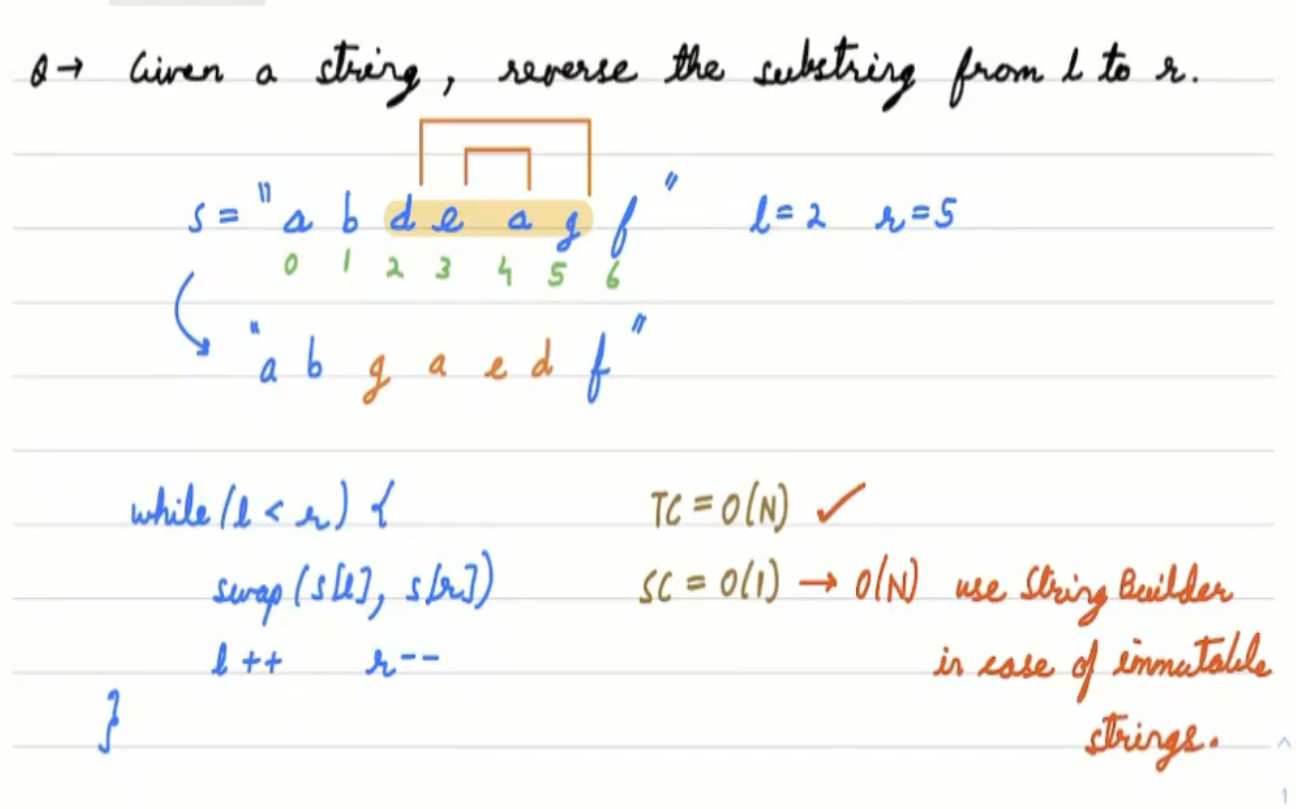 Q→ Given a string, reverse the substring from l to r.
s = "a b d e a g f" l=2 r=5
0 1 2 3 4 5 6
"a b g a e d f"
while (l < r) { TC = O(N) ✓
swap (s[l], s[r]) SC = O(1) → O(N) use String Builder
l++ r-- in case of immutable
} strings.
1